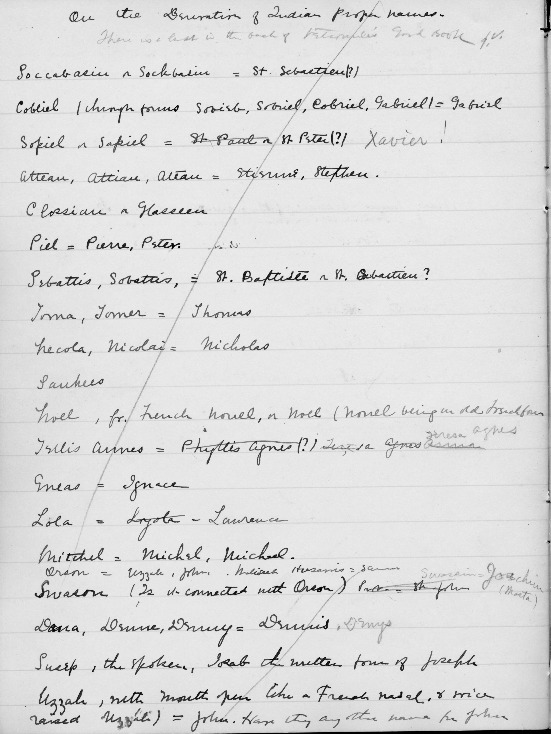 On the Derivation of Indian Proper names.
There is a list in the back of Vetromile's Book q.v.
Soccabasin or Sockbasin = St. Sebastien(?)
Cobliel (through forms Soviel, Sobriel, Cobriel, Gabriel) = Gabriel
Sopiel or Sapiel = St Paul or St Peter(?) Xavier!
Attean, Attian, Atean = Etienne, Stephen.
Clossian or Glasseen
Piel = Pierre, Peter.
Sebattis, Sobattis, = St. Baptiste or St. Sebastien?
Toma, Tomer = Thomas
Necola, Nicolai = Nicholas
Sankees
Noel, fr. French Nouel, or Noel (Nouel being an old French form
Tellis Annes = Phyllis Agnes(?) Teresa Agnes Teresa Agnes
Eneas = Ignace
Lola = Loyola - Lawrence
Mitchel = Michel, Michael.
Orson = Uzzah, John.
Swason (Is it connected with Orson) St John Swassin = Joachim
Dana, Denne, Denny = Dennis, Denys
Susep, the spoken, Josab the written form of Joseph
Uzzah, with mouth open like a French nasal, & voice
raised = John. Have they any other name for John